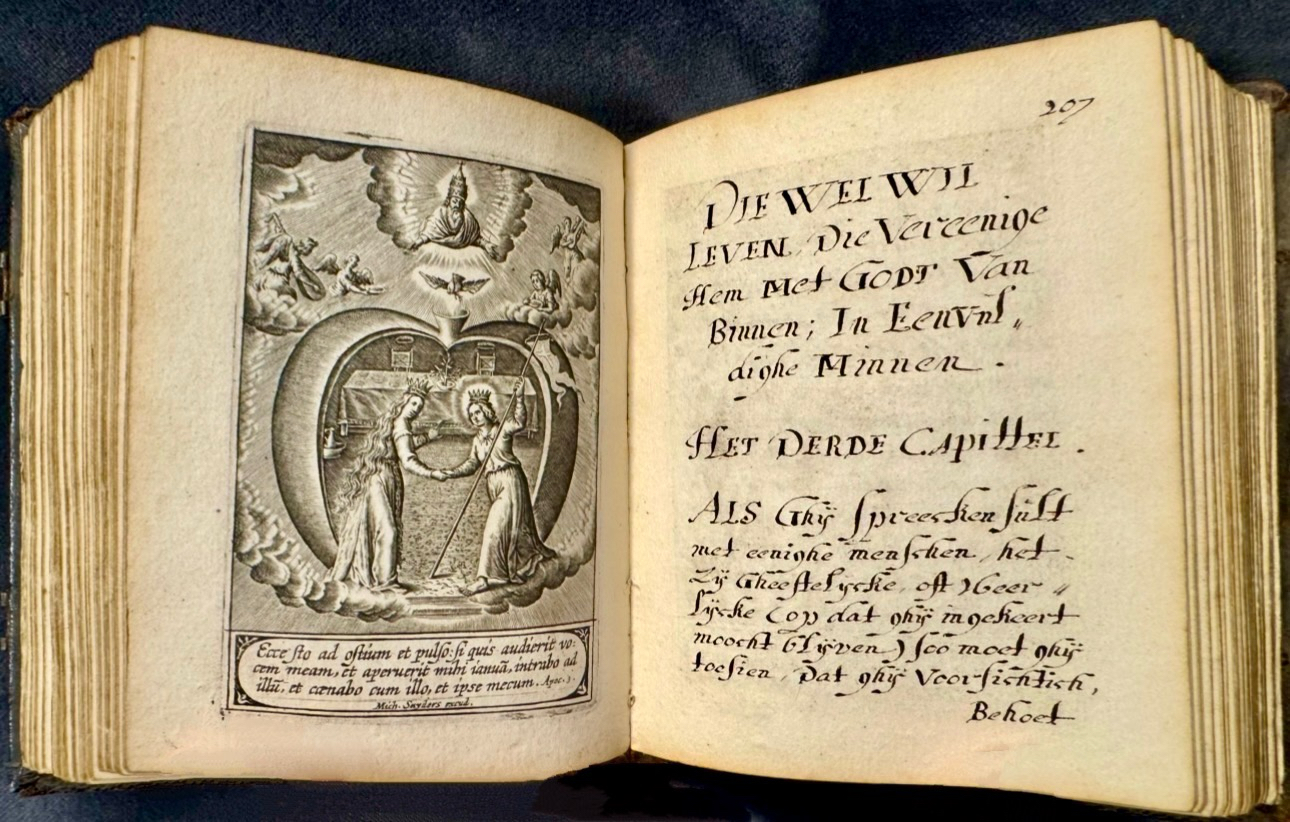 Ecce sto ad ostium et pulso: si quis audierit vo:
cem meam, et aperuerit mihi ianuā, intrabo ad
illū, et cœnabo cum illo, et ipse mecum. Apoc. 3.
Mich. Snyders excud.
207
DIE WEL WIL
LEVEN, Die Vereenige
Hem Met GODT Van
Binnen; In Eenvul„
dighe Minnen.
HET DERDE CApittel.
ALS Ghÿ spreecken sült
met eenighe menschen, het
Zÿ Gheestelÿcke, oft Weer„
lÿcke (op dat ghÿ ingekeert
moocht blÿven) soo moet ghÿ
toesien, Dat ghÿ Voorsichtich,
Behoet